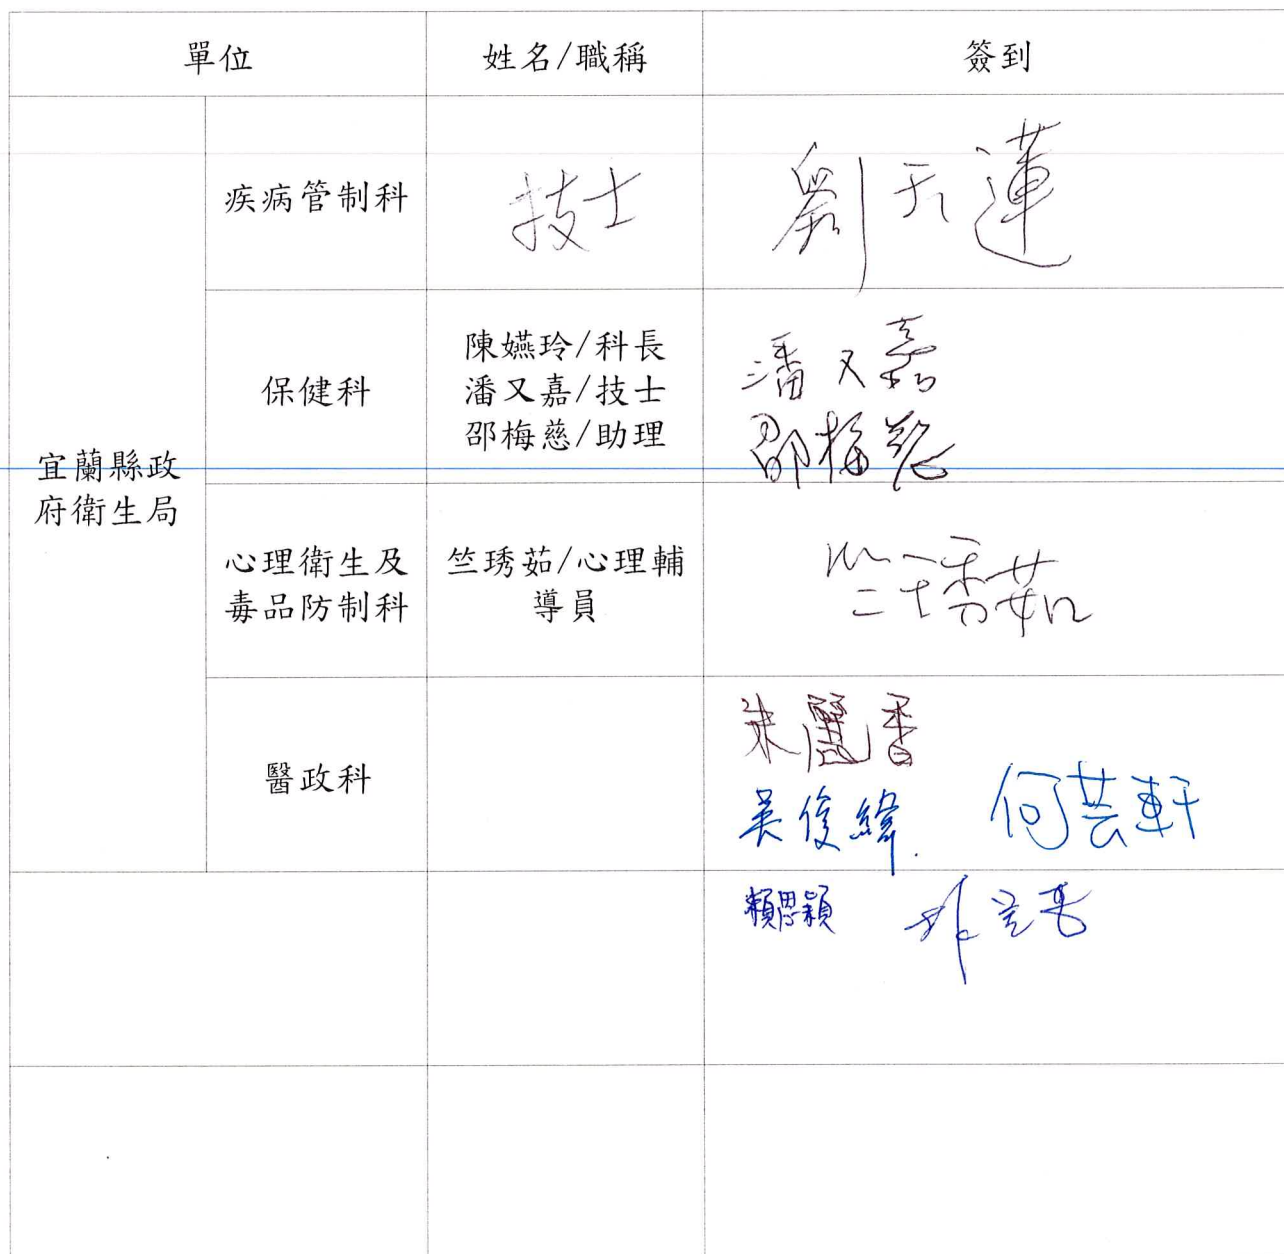 單位 姓名/職稱 簽到
宜蘭縣政
府衛生局
疾病管制科 技士 劉天蓮
保健科
陳嬿玲/科長
潘又嘉/技士
邵梅慈/助理
潘又嘉
邵梅慈
心理衛生及
毒品防制科
竺琇茹/心理輔
導員
竺琇茹
醫政科
朱麗香
吳俊緯 何芸軒
賴思穎